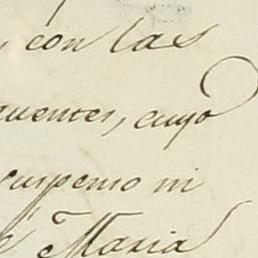 , con las
quentes, cuyo
suspenso ni
é Maria